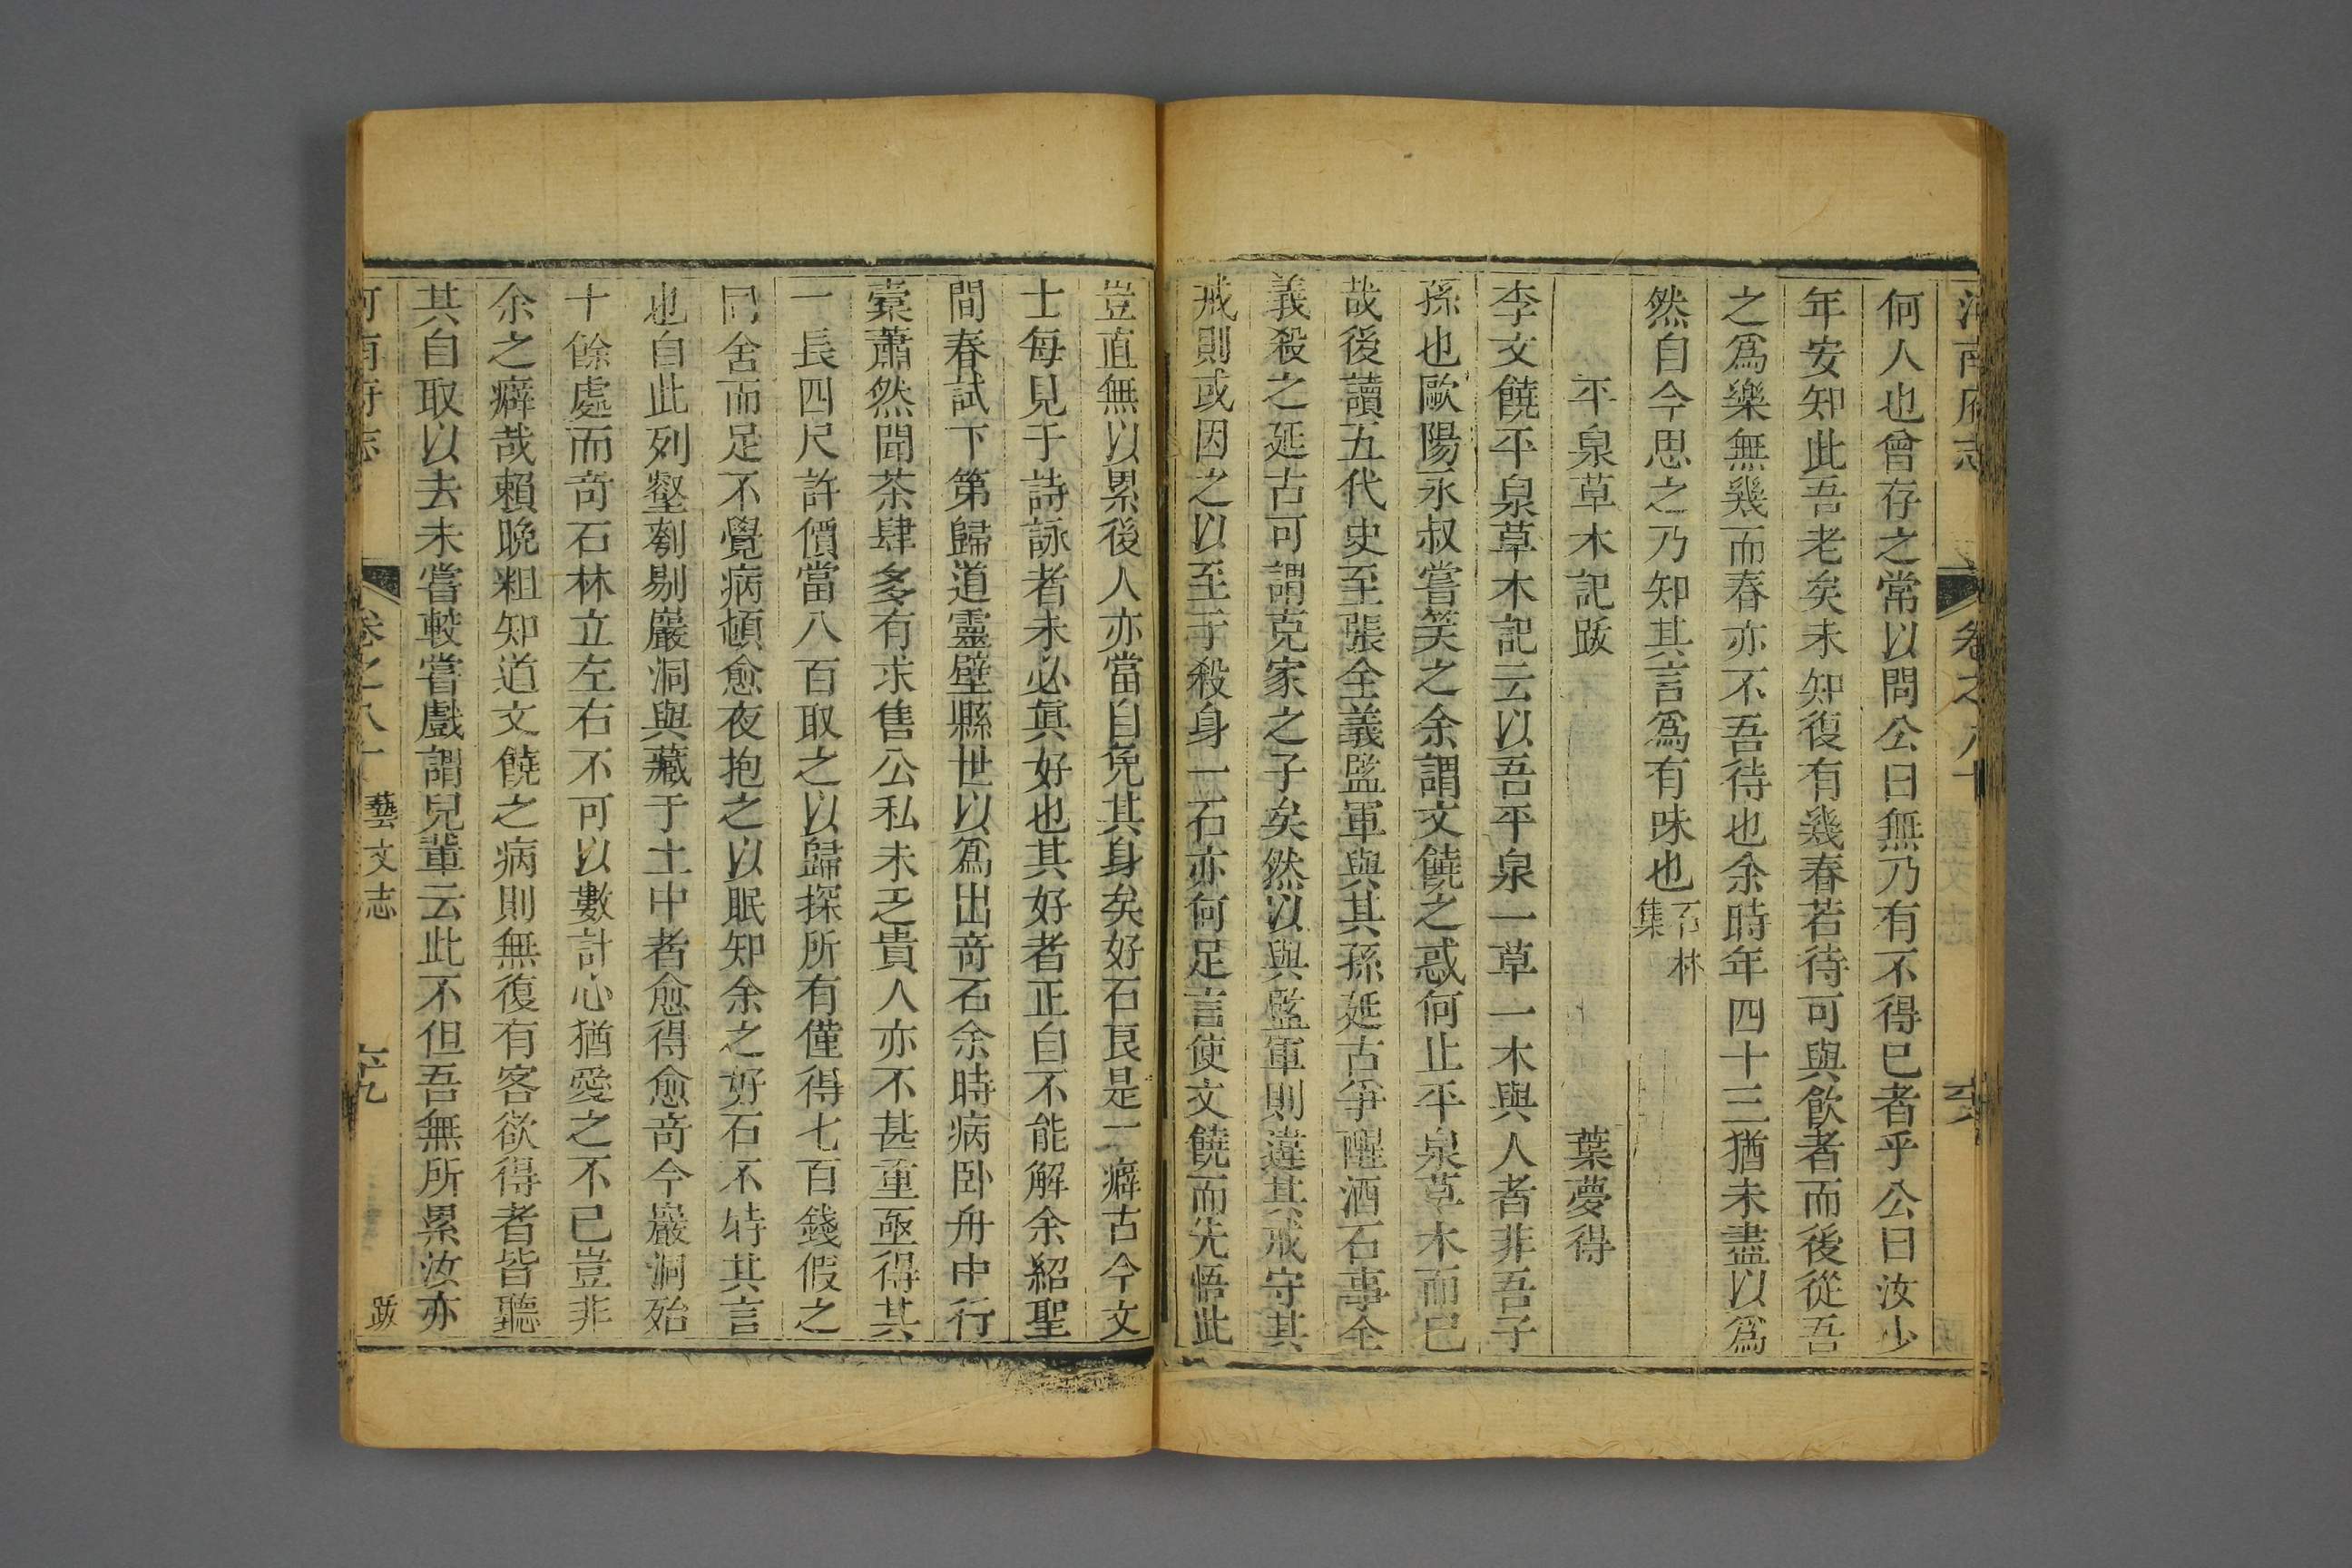 河南府志 卷之八十 六十八
何人也曾存之常以問公曰無乃有不得已者乎公曰汝少
年安知此吾老矣未知復有幾春若待可與飲者而後從吾
之爲樂無幾而春亦不吾待也余時年四十三猶未盡以爲
然自今思之乃知其言爲有味也石林集
平泉草木記跋 葉夢得
李文饒平泉草木記云以吾平泉一草一木與人者非吾子
孫也歐陽永叔嘗笑之余謂文饒之惑何止平泉草木而已
哉後讀五代史至張全義監軍與其孫延古爭醒酒石事全
義殺之延古可謂克家之子矣然以與監軍則違其戒守其
戒則或因之以至于殺身一石亦何足言使文饒而先悟此
豈直無以累後人亦當自免其身矣好石良是一癖古今文
士每見于詩詠者未必眞好也其好者正自不能解余紹聖
間春試下第歸道靈壁縣世以爲出奇石余時病卧舟中行
橐蕭然聞茶肆多有求售公私未乏貴人亦不甚重亟得其
一長四尺許價當八百取之以歸探所有僅得七百錢假之
同舍而足不覺病頓愈夜抱之以眠知余之好石不特其言
也自此列壑刳剔巖洞與藏于土中者愈得愈奇今巖洞殆
十餘處而奇石林立左右不可以數計心猶愛之不已豈非
余之癖哉賴晚粗知道文饒之病則無復有客欲得者皆聽
其自取以去未嘗較嘗戲謂兒輩云此不但吾無所累汝亦
河南府志 卷之八十 藝文志 六十九 跋